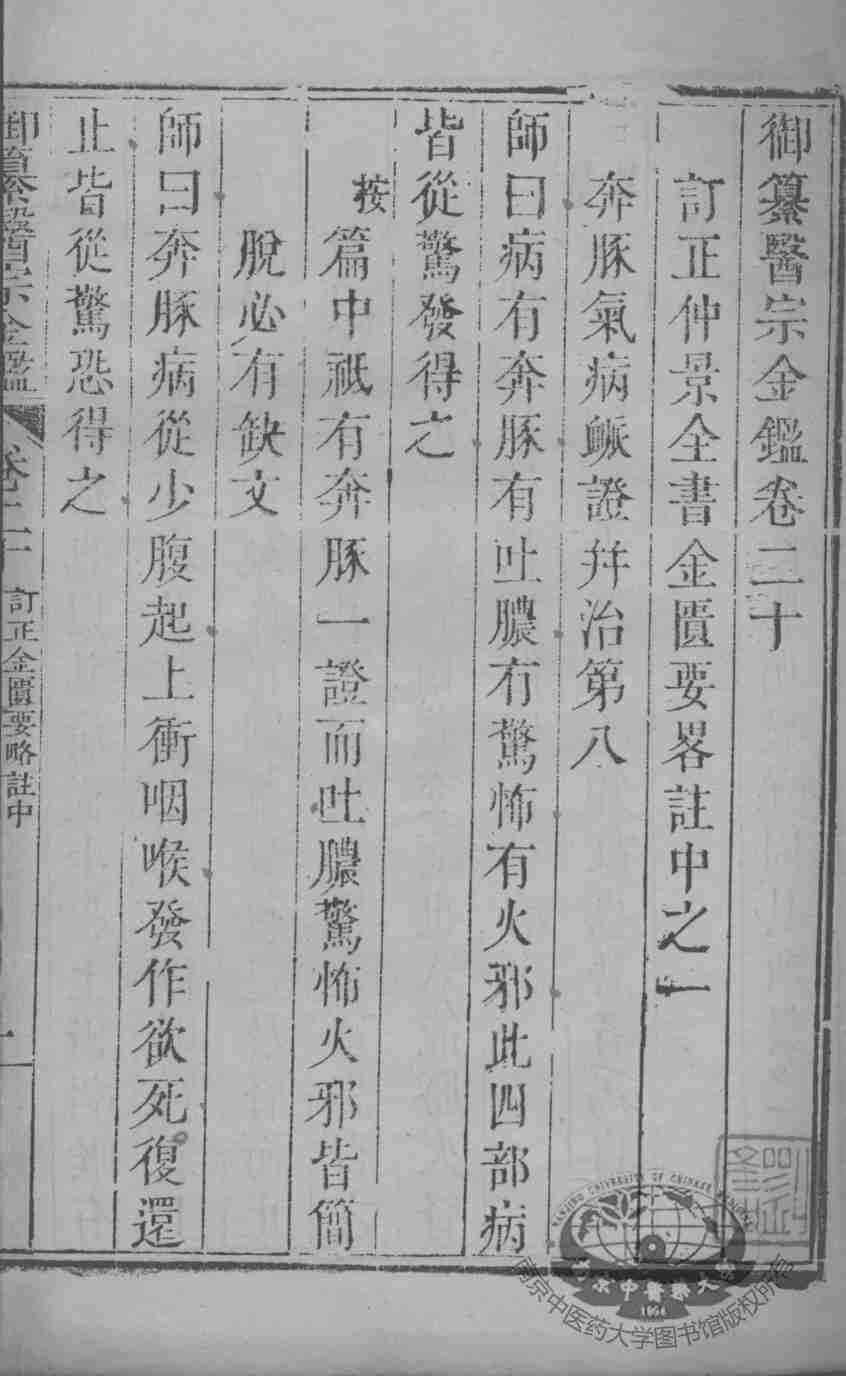 御纂醫宗金鑑卷二十
訂正仲景全書金匱要畧註中之一
奔豚氣病脈證并治第八
師曰病有奔豚有吐膿有驚怖有火邪此四部病
皆從驚發得之
按篇中祗有奔豚一證而吐膿驚怖火邪皆簡
脫必有缺文
師曰奔豚病從少腹起上衝咽喉發作欲死復還
止皆從驚恐得之
御纂醫宗金鑑 卷二十 訂正金匱要略註中 一
NANJING UNIVERSITY OF CHINESE MEDICINE
南京中醫藥大學
南京中医药大学图书馆版权所有